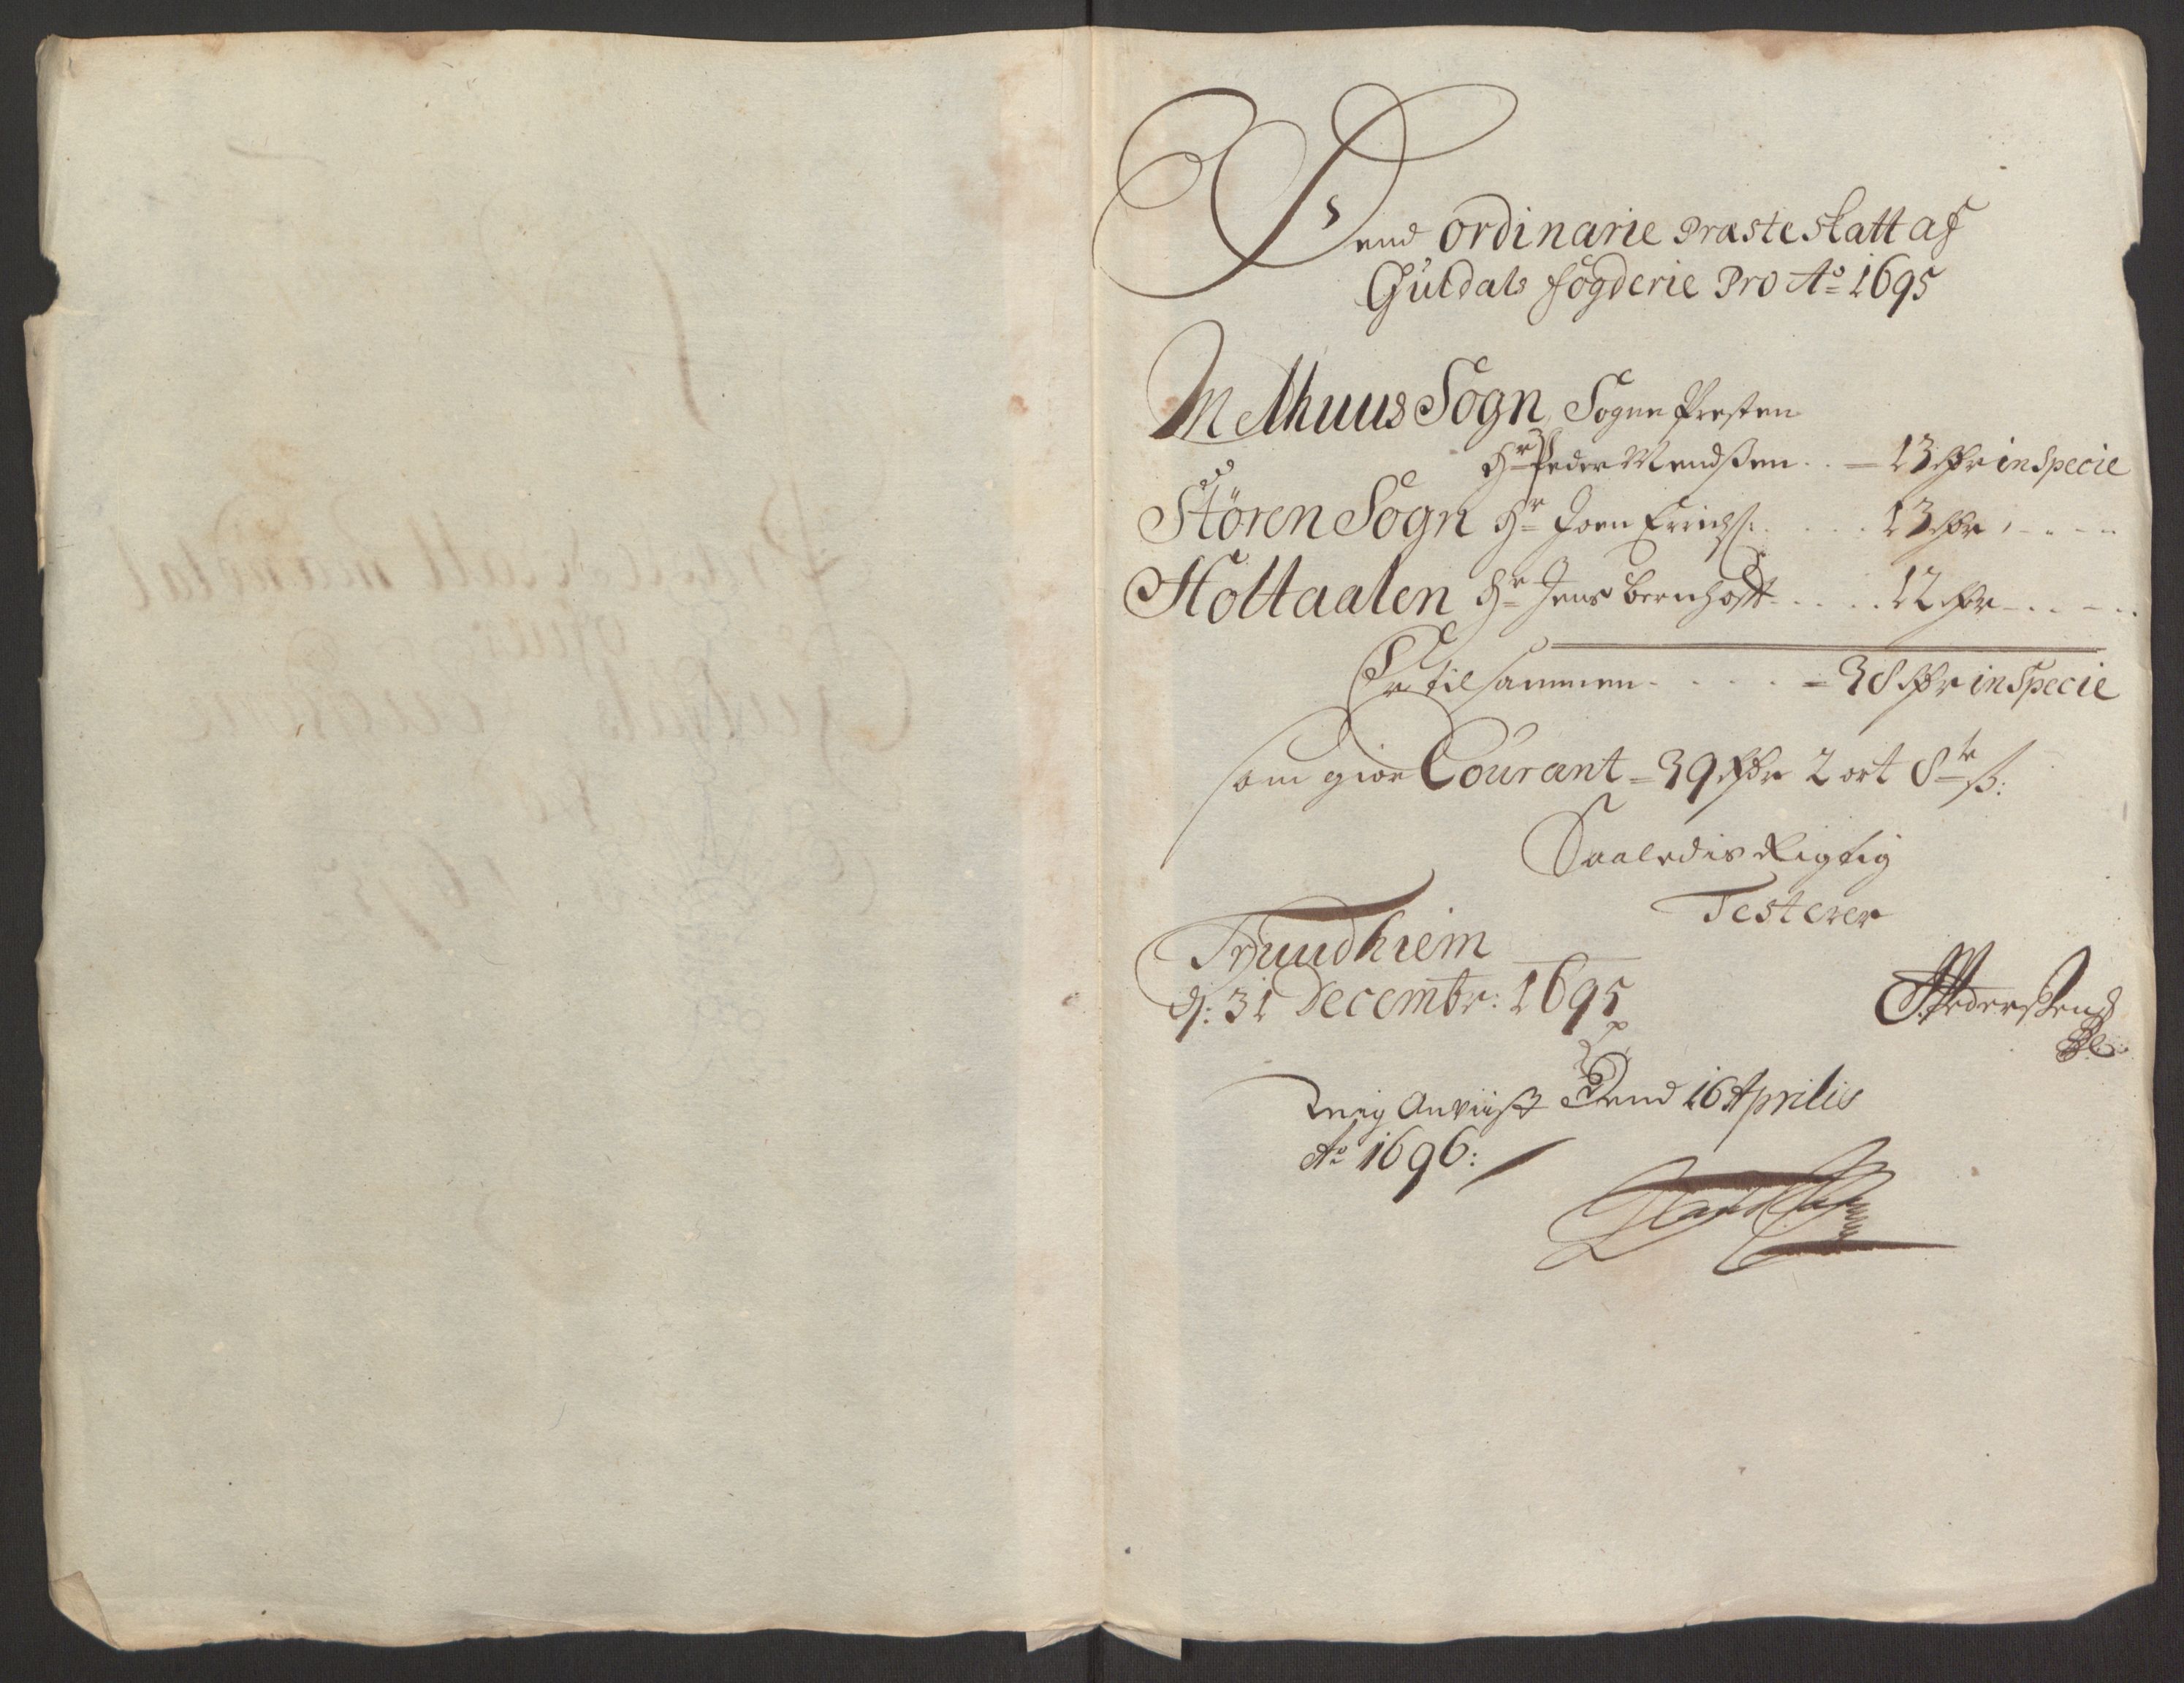 Dend ordinarie Præsteskatt af
Guldals fögderie Pro Ao 1695
Melhuus Sogn, Sogne Presten
Hr Peder Mendsßen .. 13 Rdr in Specie
Stören Sogn Hr Joen Erichs: .... 13 Rdr
Holtaalen Hr Jens Bernhoft .... 12 Rdr
Er tilsammen .... 38 Rdr in Specie
som giör Courant = 39 Rdr 2 ort 8te ß:
Saaledis Rigtig
Testerer
Trundhiem
d: 31 Decembr: 1695
Pederßen
Mig Anviist Dend 16 Aprilis
Ao 1696: